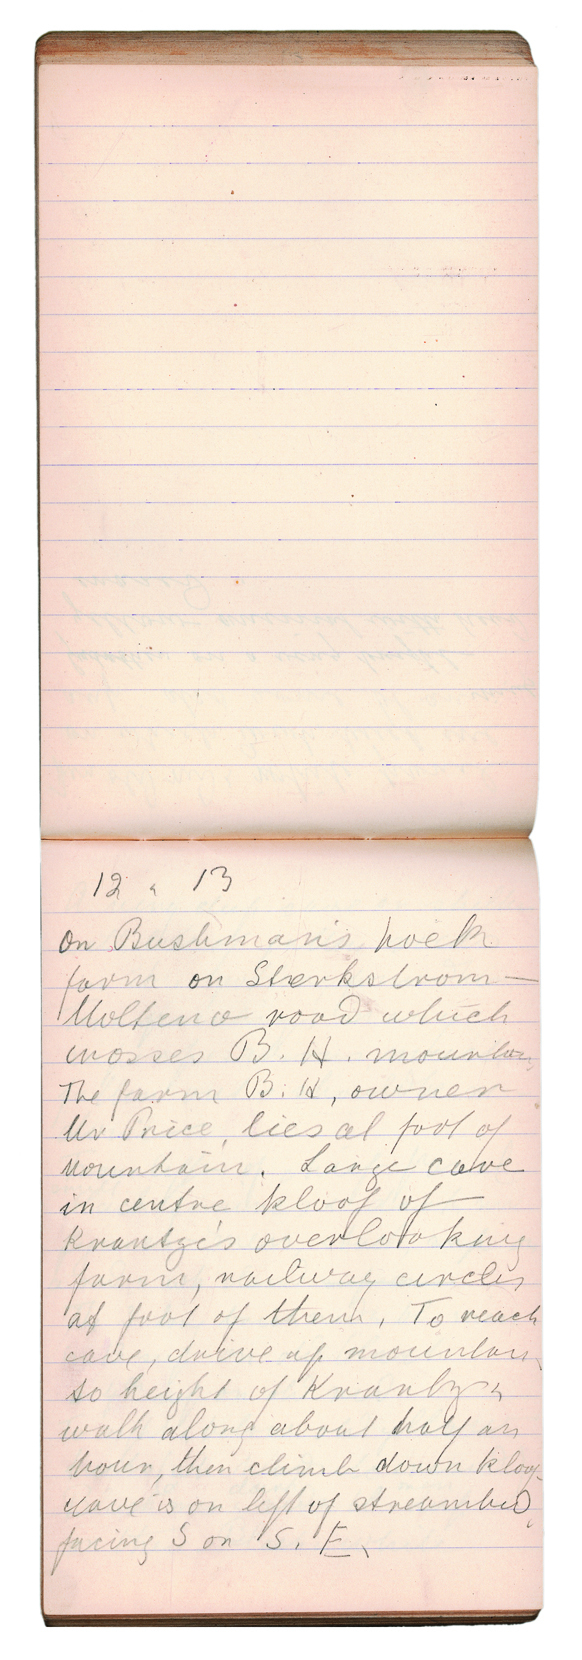 12 & 13
On Bushman's hoek
farm on Sterkstrom-
Molteno road which
crosses B. H. mountain,
The farm B. H, owner
Mr Price, lies at foot of
mountain. Large cave
in centre kloof of
Krantze's overlooking
farm, railway circles
at foot of them. To reach
cave, drive up mountain
to height of Krantz &
walk along about half an
hour, then climb down kloof
cave is on left of streambed,
facing S or S. E.